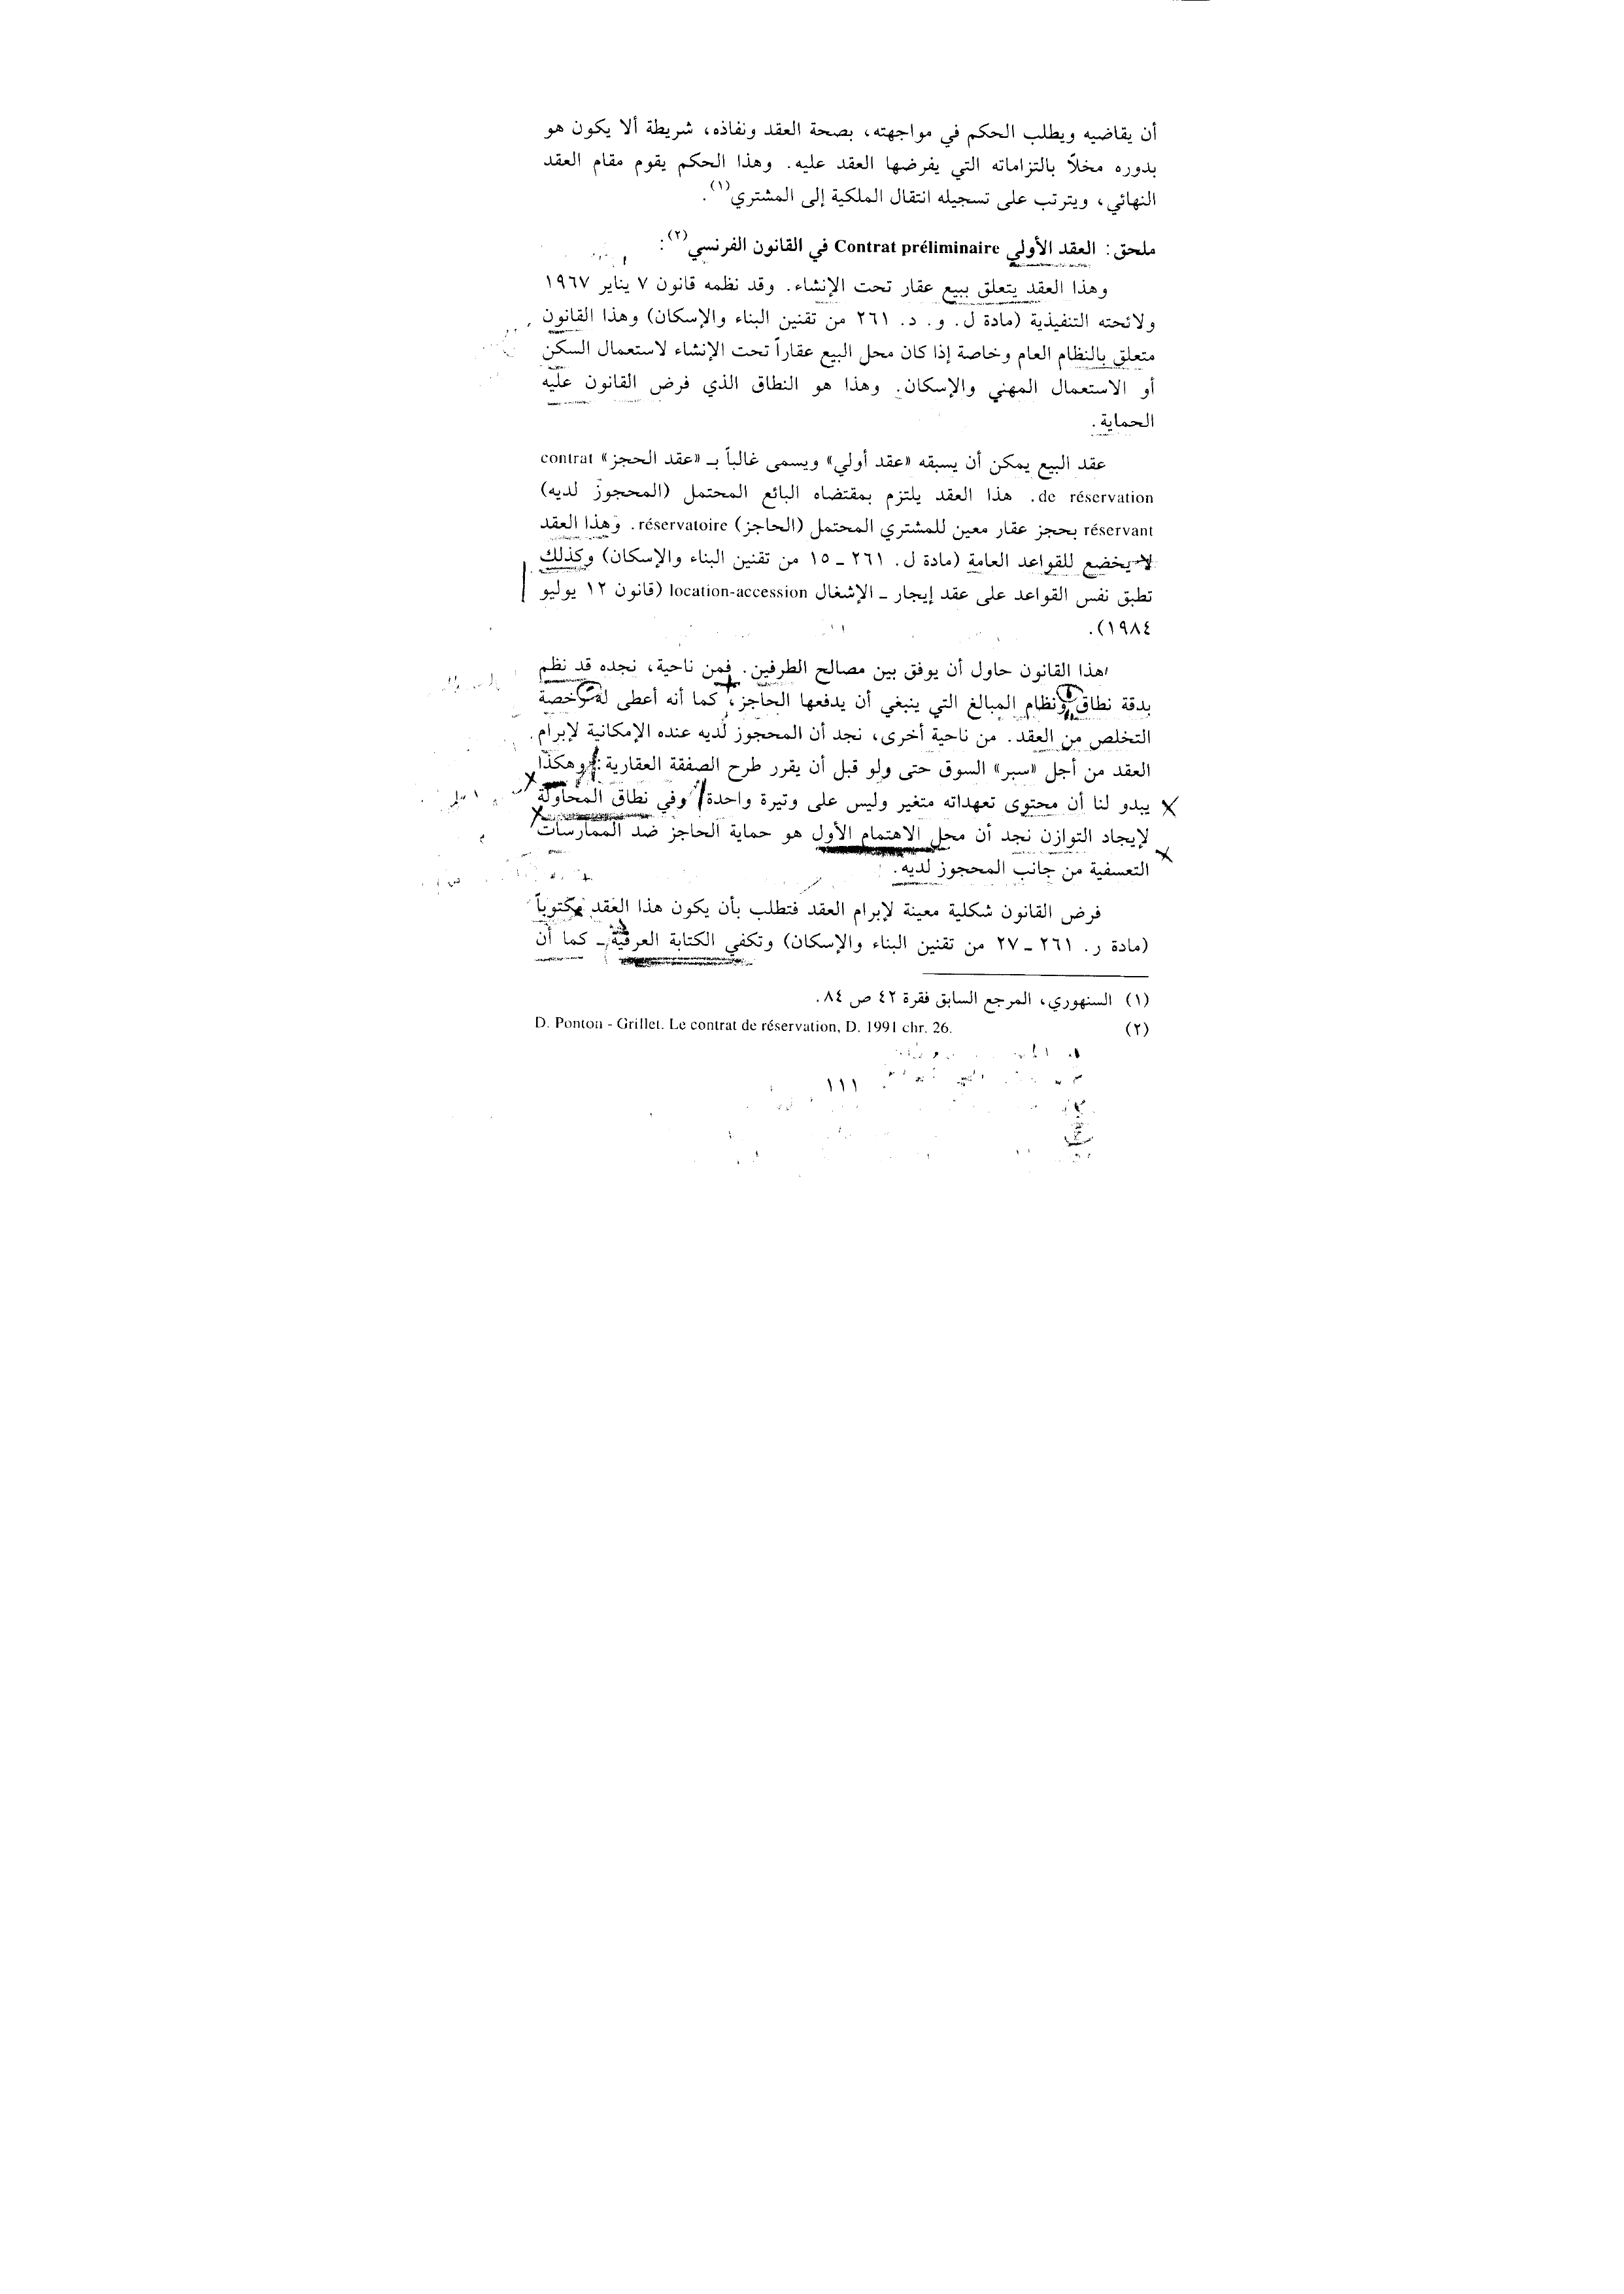 أن يقاضيه ويطلب الحكم في مواجهته، بصحة العقد ونفاذه، شريطة ألا يكون هو
بدوره مخلاً بالتزاماته التي يفرضها العقد عليه. وهذا الحكم يقوم مقام العقد
النهائي، ويترتب على تسجيله انتقال الملكية إلى المشتري(١).
ملحق: العقد الأولي Contrat préliminaire في القانون الفرنسي(٢):
وهذا العقد يتعلق ببيع عقار تحت الإنشاء. وقد نظمه قانون ٧ يناير ١٩٦٧
ولائحته التنفيذية (مادة ل. و. د. ٢٦١ من تقنين البناء والإسكان) وهذا القانون
متعلق بالنظام العام وخاصة إذا كان محل البيع عقاراً تحت الإنشاء لاستعمال السكن
أو الاستعمال المهني والإسكان. وهذا هو النطاق الذي فرض القانون عليه
الحماية.
عقد البيع يمكن أن يسبقه «عقد أولي» ويسمى غالباً بـ «عقد الحجز» contrat
de réservation. هذا العقد يلتزم بمقتضاه البائع المحتمل (المحجوز لديه)
réservant بحجز عقار معين للمشتري المحتمل (الحاجز) réservatoire. وهذا العقد
لا يخضع للقواعد العامة (مادة ل. ٢٦١ ـ ١٥ من تقنين البناء والإسكان) وكذلك
تطبق نفس القواعد على عقد إيجار ـ الإشغال location-accession (قانون ١٢ يوليو
١٩٨٤).
هذا القانون حاول أن يوفق بين مصالح الطرفين. فمن ناحية، نجده قد نظم
بدقة نطاق ونظام المبالغ التي ينبغي أن يدفعها الحاجز، كما أنه أعطى له رخصة
التخلص من العقد. من ناحية أخرى، نجد أن المحجوز لديه عنده الإمكانية لإبرام
العقد من أجل «سبر» السوق حتى ولو قبل أن يقرر طرح الصفقة العقارية: وهكذا
يبدو لنا أن محتوى تعهداته متغير وليس على وتيرة واحدة وفي نطاق المحاولة
لإيجاد التوازن نجد أن محل الاهتمام الأول هو حماية الحاجز ضد الممارسات
التعسفية من جانب المحجوز لديه.
فرض القانون شكلية معينة لإبرام العقد فتطلب بأن يكون هذا العقد مكتوباً
(مادة ر. ٢٦١ ـ ٢٧ من تقنين البناء والإسكان) وتكفي الكتابة العرفية ـ كما أن
(١) السنهوري، المرجع السابق فقرة ٤٢ ص ٨٤.
(٢) D. Ponton - Grillet. Le contrat de réservation, D. 1991 chr. 26.
١١١